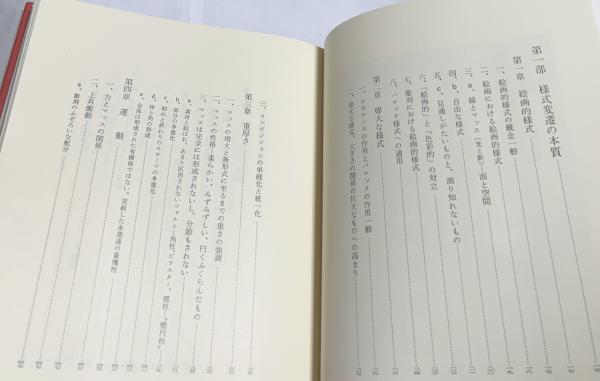 第一部 様式変遷の本質
第一章 絵画的様式
一、絵画的様式の概念一般
二、絵画における絵画的様式
三、a、線とマッス(光と影)、面と空間
四、b、自由な様式
五、c、見通しがたいものと、測り知れないもの
六、「絵画的」と「色彩的」の対立
七、彫刻における絵画的様式
八、バロック様式への適用
第二章 偉大な様式
一、ルネサンスの作用とバロックの作用一般
二、偉大な様式、大きさの関係の巨大なものへの高まり
三、コンポジションの単純化と統一化
第三章 重厚さ
一、マッスの増大と無形式に至るまでの重さの強調
二、マッスの性格・柔らかい、みずみずしい、円くふくらんだもの
三、マッスは完全には形成されないし、分節もされない
a、素材と結ばれ、あまり区画されないフォルム
b、部分の多重化
c、初めと終わりのモチーフの多重化
d、枠と角の形成
e、全体は形成された有機体ではない。完結した未発達の量塊性
第四章 運動
一、力とマッスの関係
二、上昇衝動
a、彫刻のふぞろいな配分